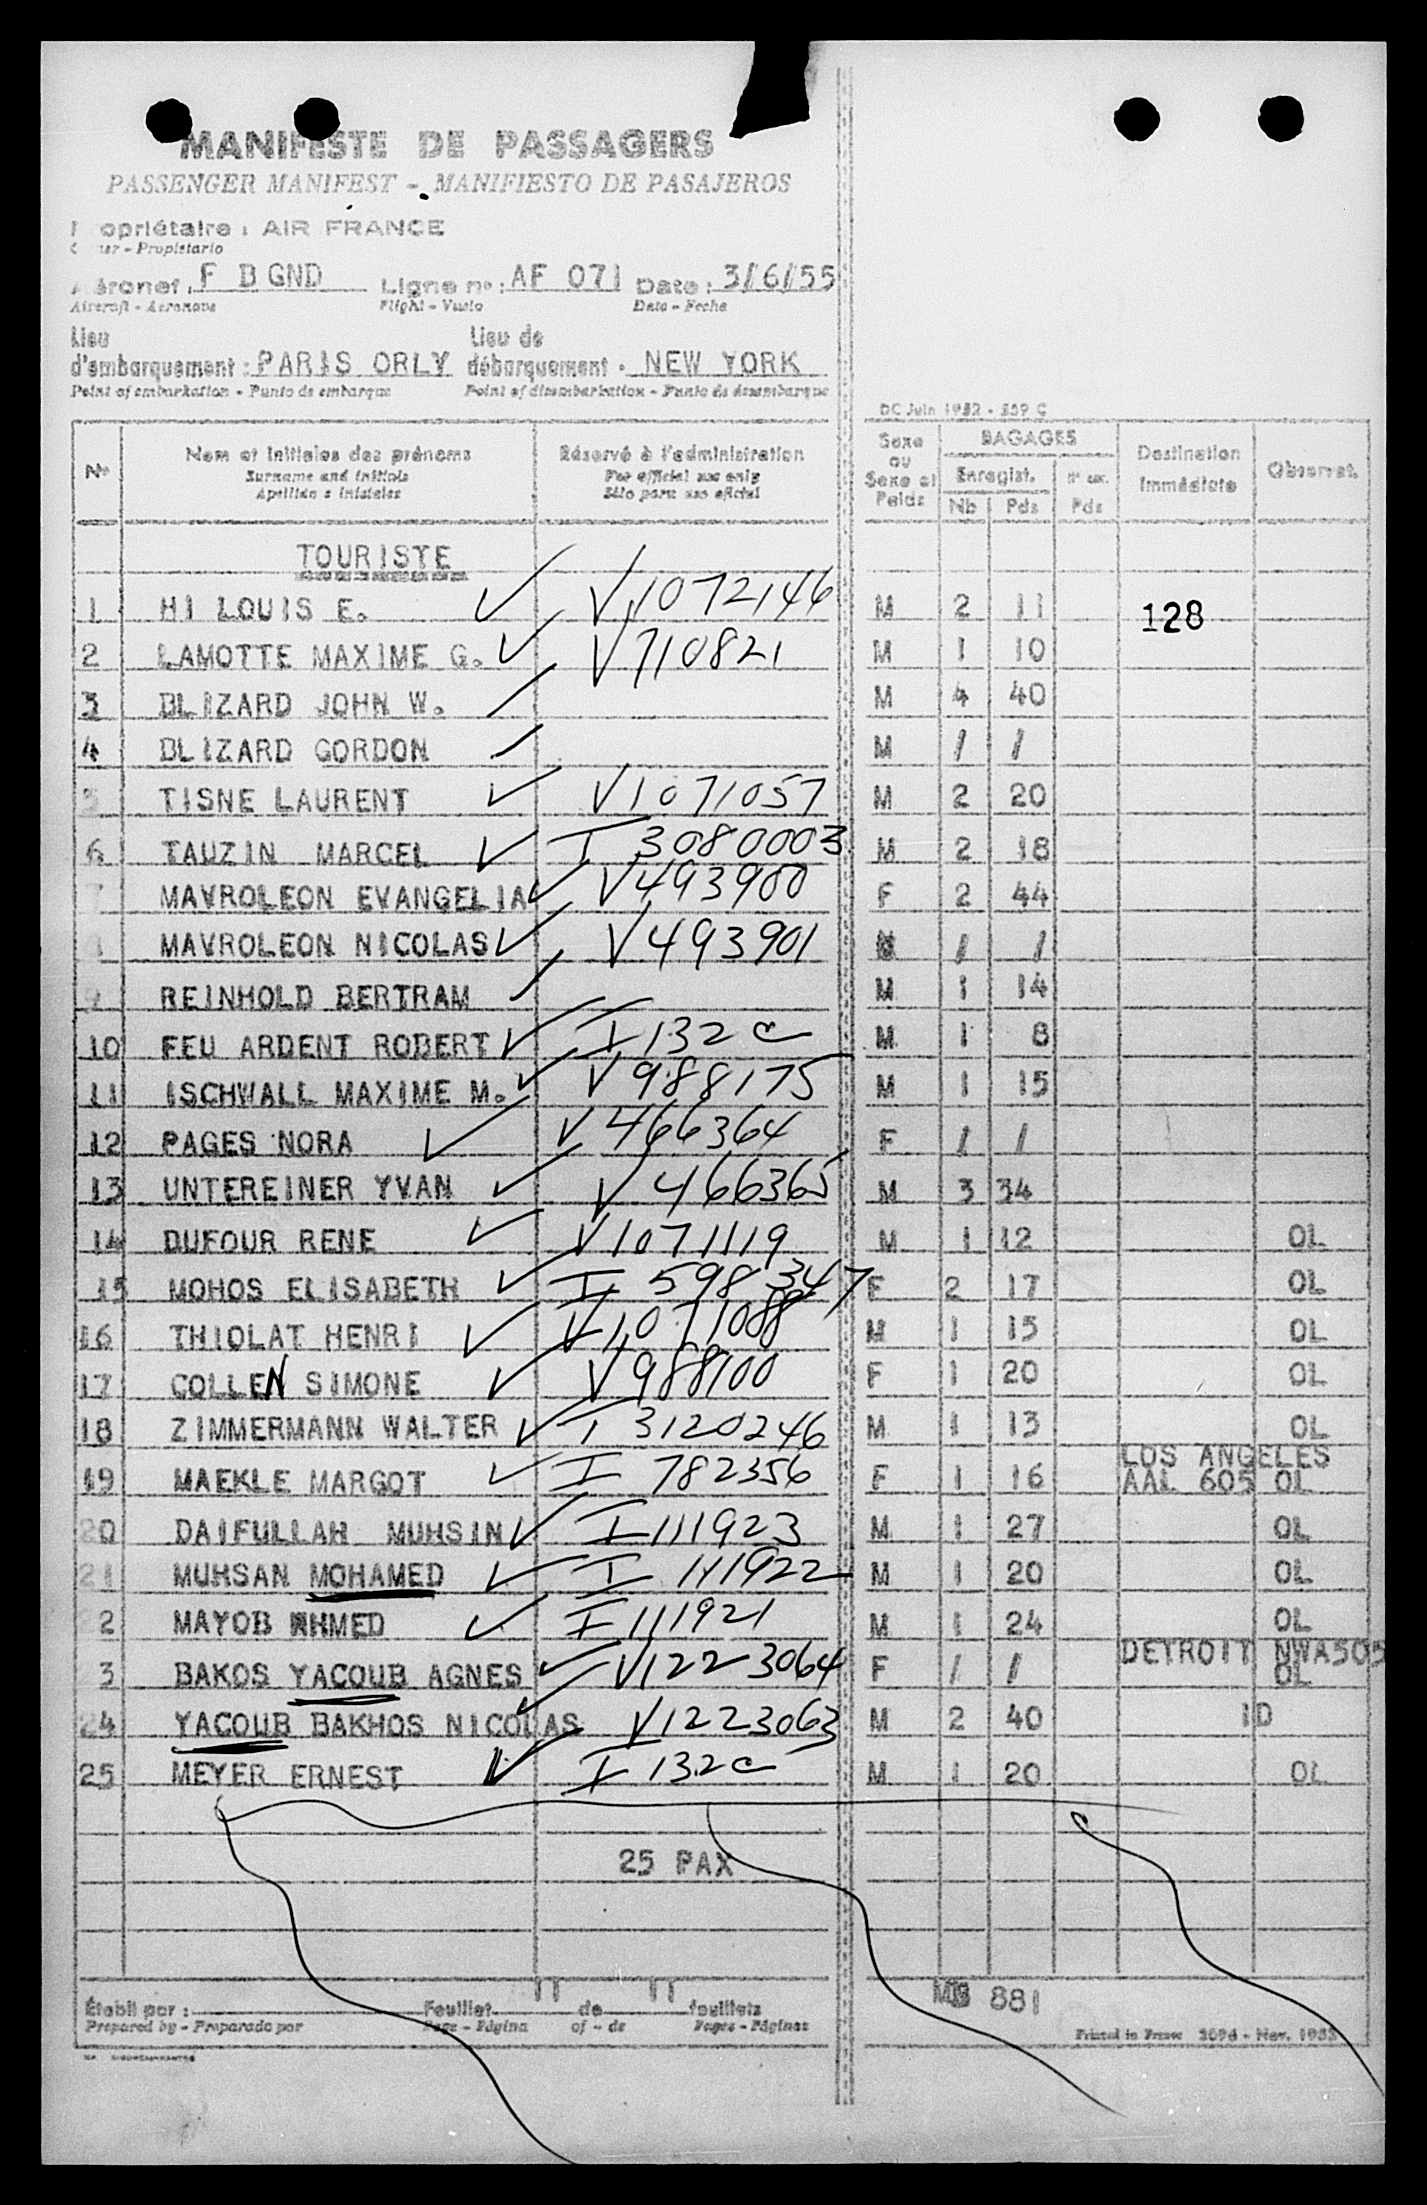 MANIFESTE DE PASSAGERS
PASSENGER MANIFEST - MANIFIESTO DE PASAJEROS
opriétaire : AIR FRANCE
er - Propietario
Aéronef : F BGND Ligne n° : AF 071 Date : 3/6/55
Aircraft - Aeronave Flight - Vuelo Date - Fecha
Lieu Lieu de
d'embarquement : PARIS ORLY débarquement . NEW YORK
Point of embarkation - Punto de embarque Point of disembarkation - Punto de desembarque
DC Juin 1952 - 559 C
N° Nom et initiales des prénoms Réservé à l'administration Sexe ou Sexe et Poids BAGAGES Destination immédiate Observat.
Surname and initials For official use only Enregist. N° enr.
Apellido e iniciales Sólo para uso oficial Nb Pds Pds
TOURISTE
1 HI LOUIS E. V 1072146 M 2 11 128
2 LAMOTTE MAXIME G. V 710821 M 1 10
3 BLIZARD JOHN W. M 4 40
4 BLIZARD GORDON M / /
5 TISNE LAURENT V 1071057 M 2 20
6 TAUZIN MARCEL I 3080003 M 2 18
7 MAVROLEON EVANGELIA V 493900 F 2 44
MAVROLEON NICOLAS V 493901 / /
9 REINHOLD BERTRAM M 1 14
10 FEU ARDENT ROBERT I 132 a M 1 8
11 ISCHWALL MAXIME M. V 988175 M 1 15
12 PAGES NORA V 466364 F / /
13 UNTEREINER YVAN V 466365 M 3 34
14 DUFOUR RENE V 1071119 M 1 12 OL
15 MOHOS ELISABETH I 598347 F 2 17 OL
16 THIOLAT HENRI V 1071088 M 1 15 OL
17 COLLEN SIMONE V 988100 F 1 20 OL
18 ZIMMERMANN WALTER I 3120246 M 1 13 OL
LOS ANGELES
19 MAEKLE MARGOT I 782356 F 1 16 AAL 605 OL
20 DAIFULLAH MUHSIN I 111923 M 1 27 OL
21 MUHSAN MOHAMED I 111922 M 1 20 OL
2 MAYOB AHMED I 111921 M 1 24 OL
DETROIT NWA505
3 BAKOS YACOUB AGNES V 1223064 F / / OL
24 YACOUB BAKHOS NICOLAS V 1223063 M 2 40 ID
25 MEYER ERNEST I 132 a M 1 20 OL
25 PAX
Établi par : Feuillet 11 de 11 feuillets 881
Prepared by - Preparado por Page - Página of - de Pages - Páginas
Printed in France 309d - Nov. 1953